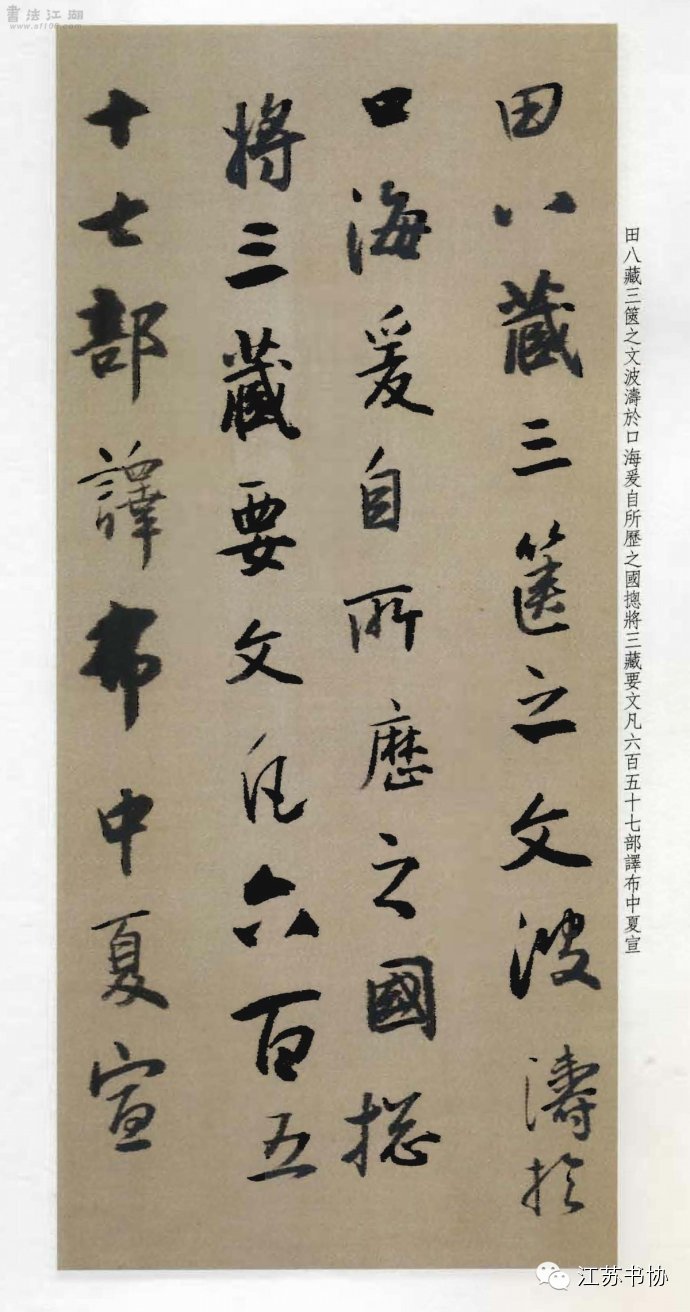 書法江湖
www.sf108.com
田八藏三篋之文波濤於
口海爰自所歷之國揔
將三藏要文凡六百五
十七部譯布中夏宣
田八藏三篋之文波濤於口海爰自所歷之國揔將三藏要文凡六百五十七部譯布中夏宣
江苏书协